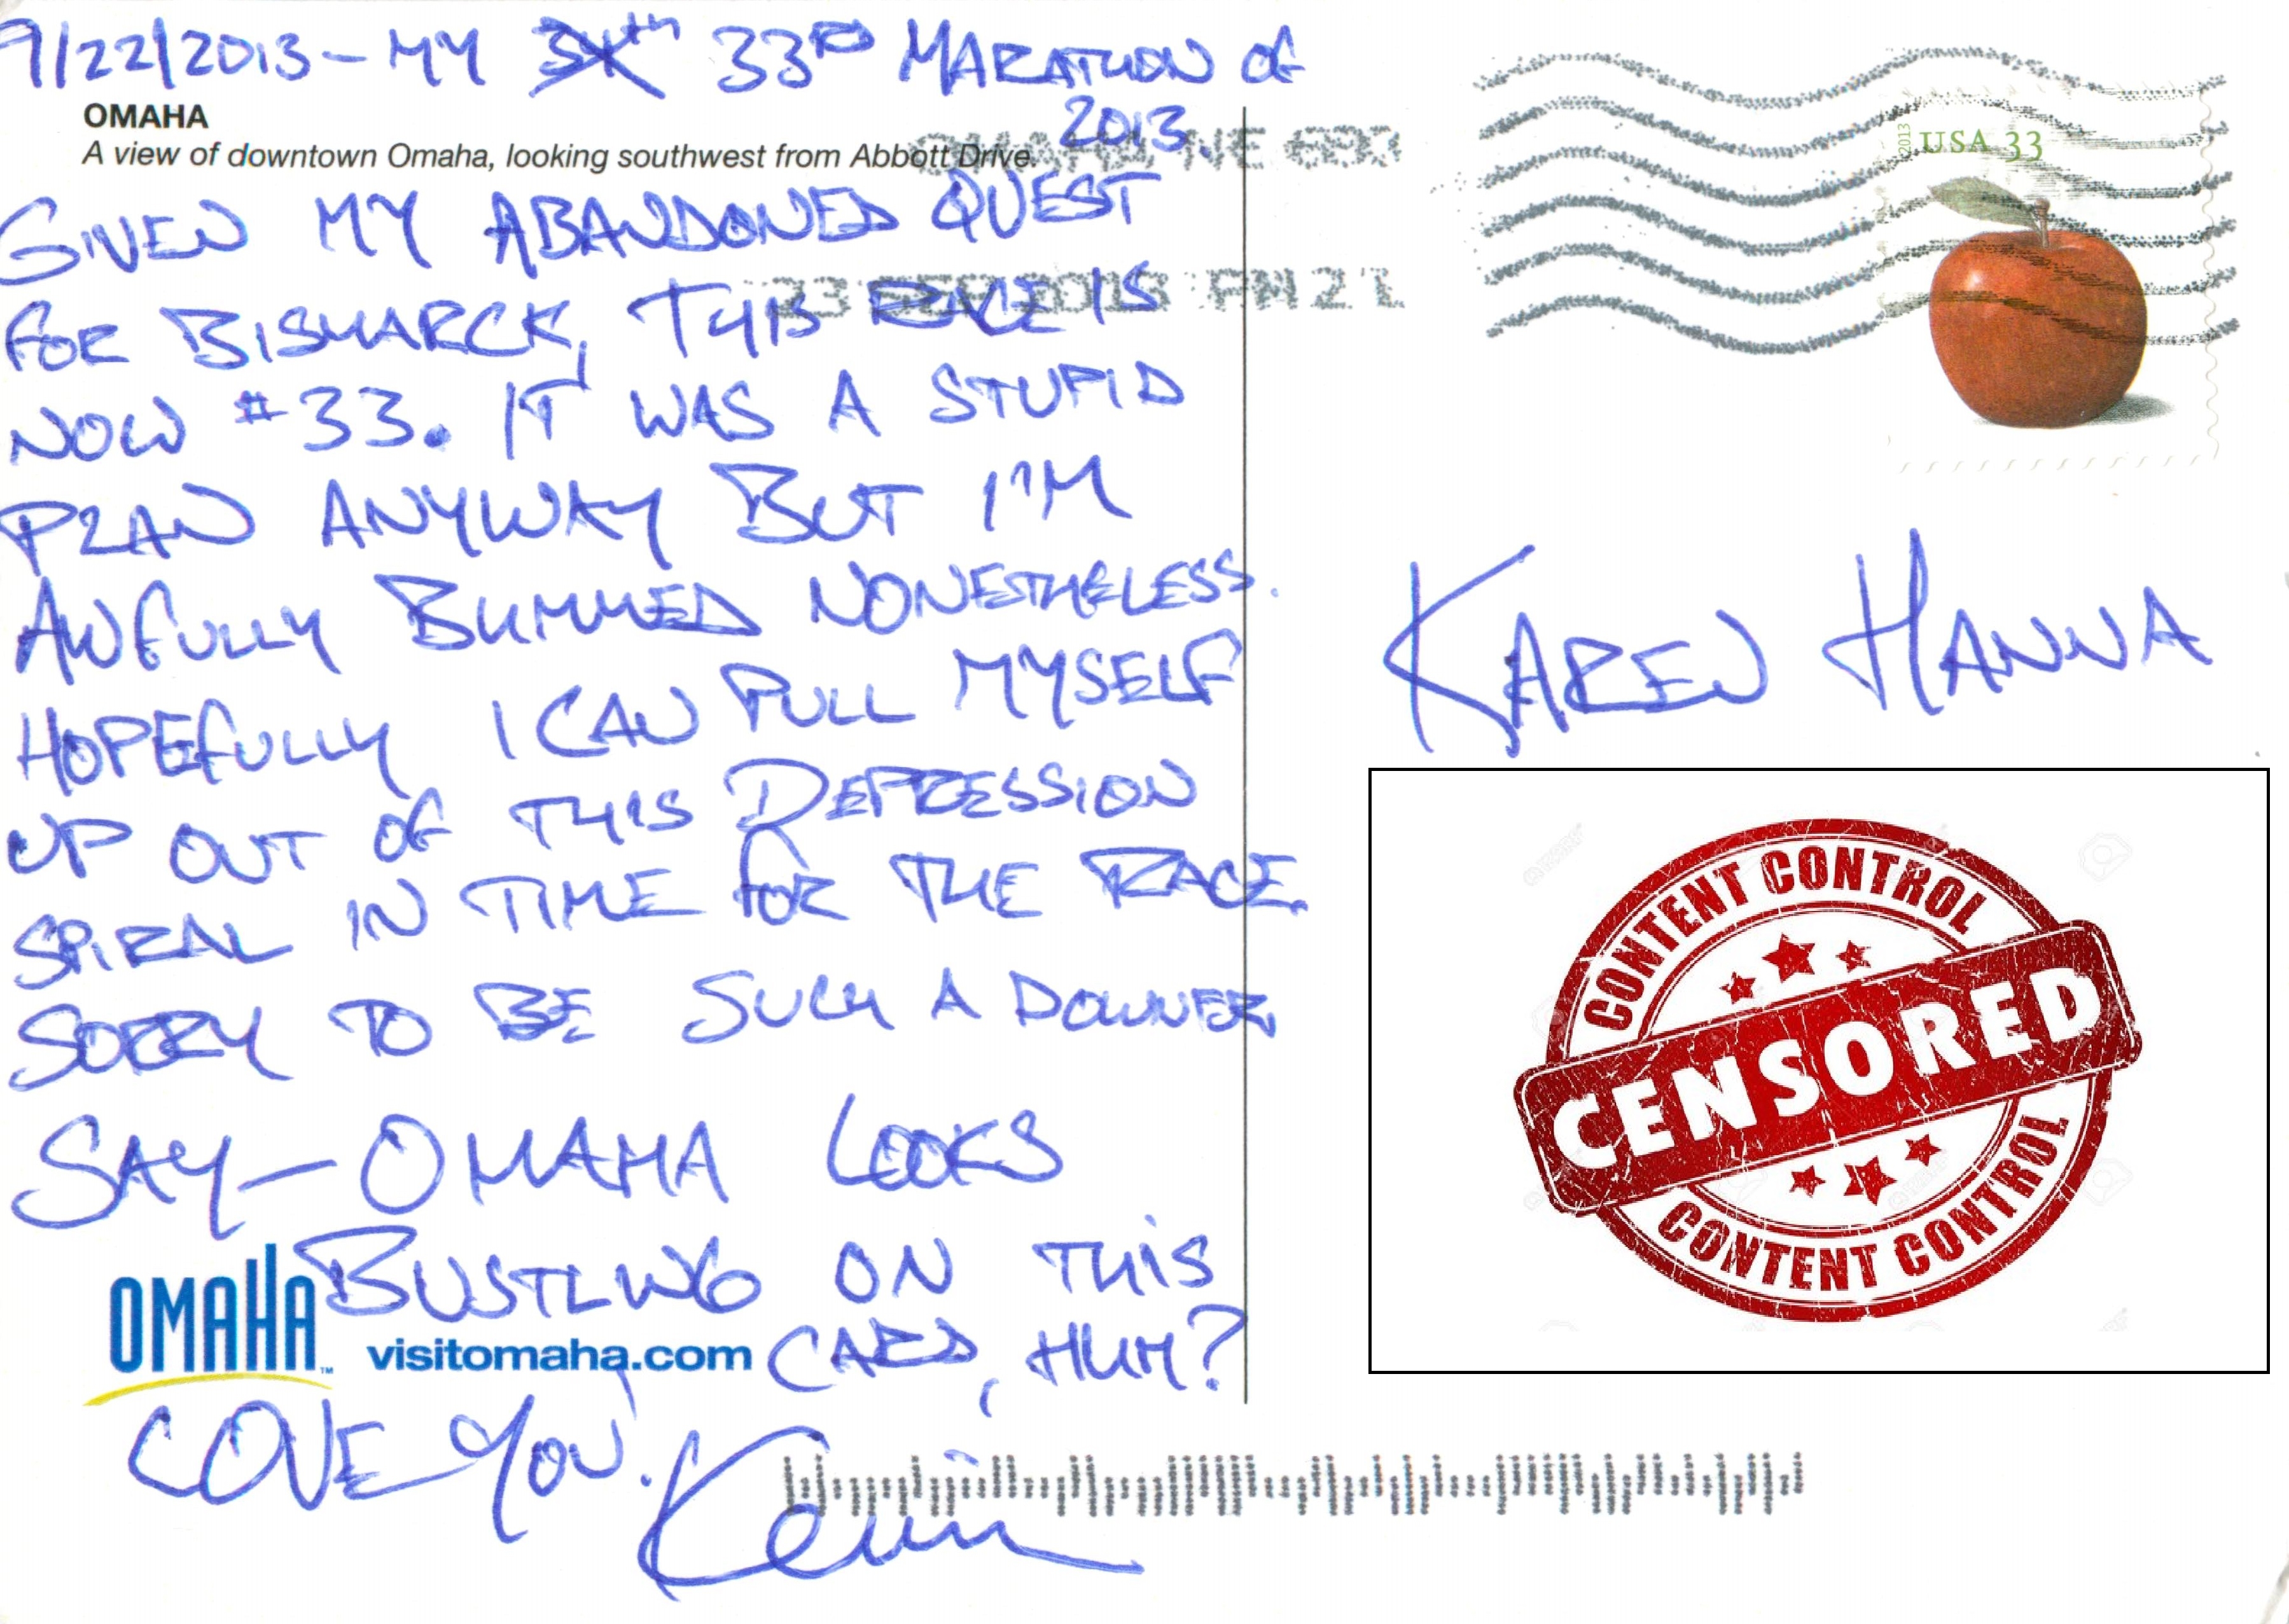 9/22/2013 - MY 34th 33RD MARATHON OF
2013.
OMAHA
A view of downtown Omaha, looking southwest from Abbott Drive.
GIVEN MY ABANDONED QUEST
FOR BISMARCK, THIS RACE IS
NOW #33. IT WAS A STUPID
PLAN ANYWAY BUT I'M
AWFULLY BUMMED NONETHELESS.
HOPEFULLY I CAN PULL MYSELF
UP OUT OF THIS DEPRESSION
SPIRAL IN TIME FOR THE RACE.
SORRY TO BE SUCH A DOWNER
SAY- OMAHA LOOKS
BUSTLING ON THIS
CARD, HUH?
OMAHA™
visitomaha.com
LOVE YOU.
Kevin
OMAHA NE 680
23 SEP 2013 PM 2 L
2013
USA 33
KAREN HANNA
CONTENT CONTROL
CENSORED
CONTENT CONTROL